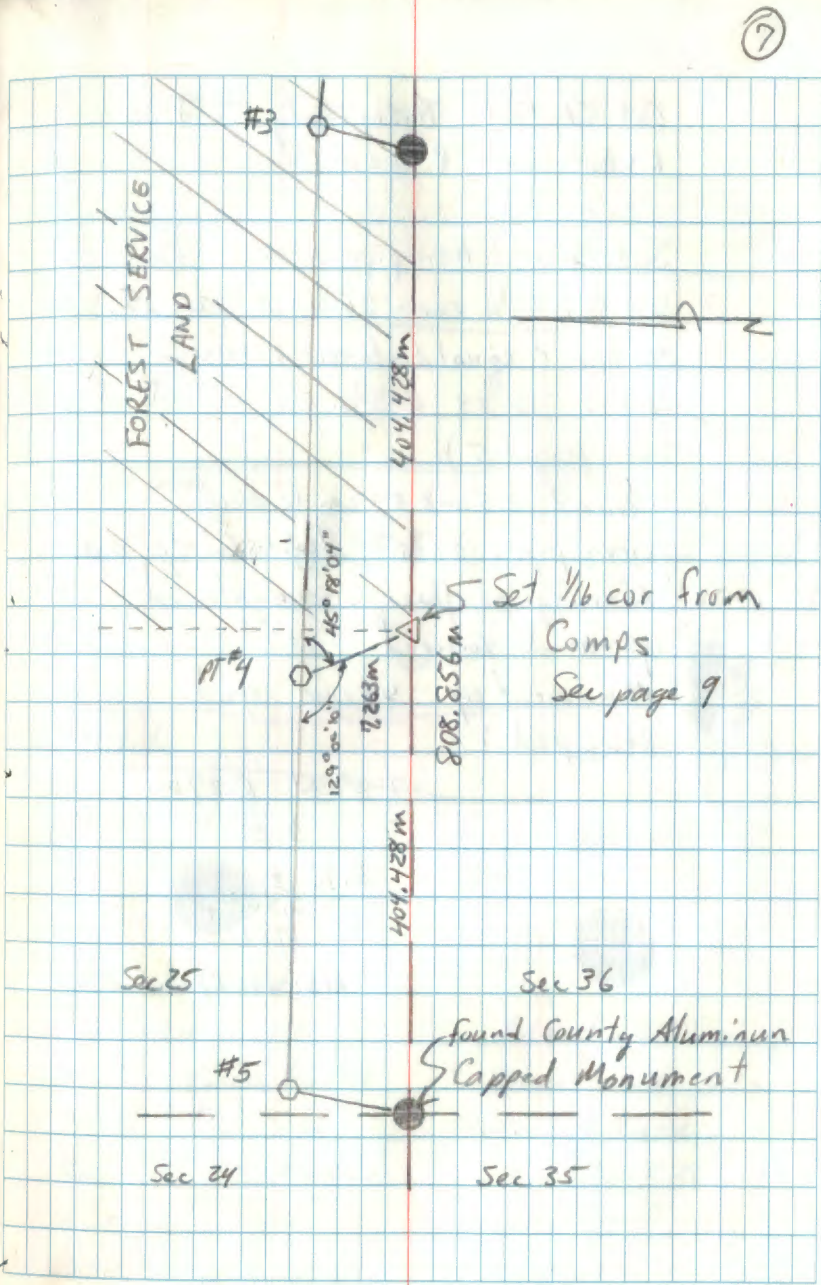 7
#3
FOREST SERVICE
LAND
404.428m
45° 18' 04"
Set 1/16 cor from
Comps
See page 9
PT #4
7.263m
808.856 m
404.428 m
Sec 25
Sec 36
found County Aluminun
Capped Monument
#5
Sec 24
Sec 35